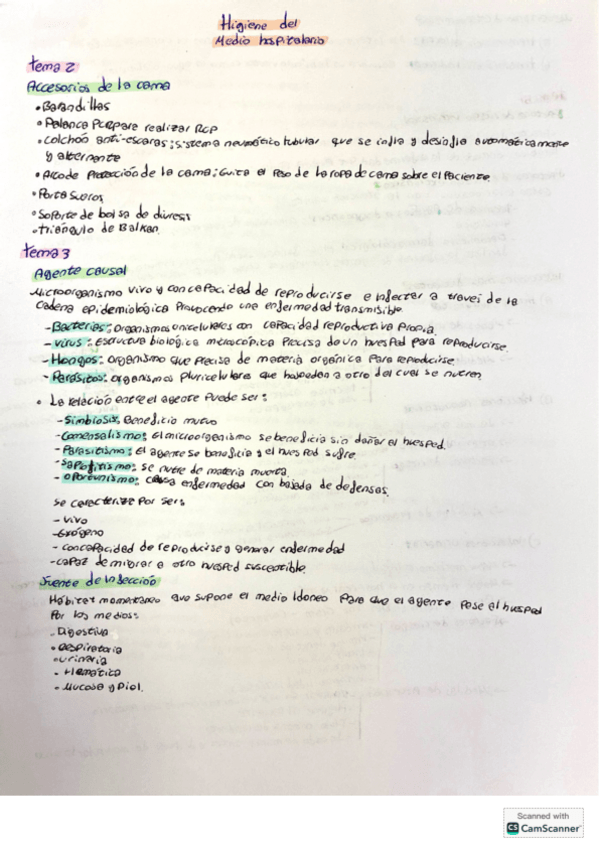 Higiene del
Medio hospitalario
tema 2
Accesorios de la cama
• Barandillas
• Palanca PCR para realizar RCP
• Colchón anti-escaras; Sistema neumático tubular que se infla y desinfla automáticamente
y alternante
• Arco de Protección de la cama; Evita el Peso de la ropa de cama sobre el Paciente.
• Porta sueros
• Soporte de bolsa de diuresis
• triángulo de Balkan.
tema 3
Agente causal
Microorganismo vivo y con capacidad de reproducirse e infectar a traves de la
cadena epidemiológica Provocando una enfermedad transmisible.
- Bacterias: Organismos unicelulares con capacidad reproductiva Propia.
- Virus: Estructura biologica microscópica Precisa de un huesped para reproducirse.
- Hongos: organismo que precisa de materia orgánica Para reproducirse.
- Parásitos: organismos pluricelulares que hospedan a otro del cual se nutren
• La relación entre el agente Puede ser:
- Simbiosis: Beneficio mutuo
- Comensalismo: El microorganismo se beneficia sin dañar el huesped.
- Parasitismo: El agente se beneficia y el huesped sufre.
- Saprofitismo: se nutre de materia muerta.
- Oportunismo: causa enfermedad con bajada de defensas.
Se caracteriza Por ser:
- Vivo
- Exógeno
- con capacidad de reproducirse y generar enfermedad
- capaz de migrar a otro huesped susceptible.
Fuente de infección
Hábitat momentaneo que supone el medio Idoneo Para que el agente Pase al huesped
Por los medios:
- Digestiva
• Respiratoria
• Urinaria
- Hematica
- Mucosa y piel.
Scanned with
CS CamScanner